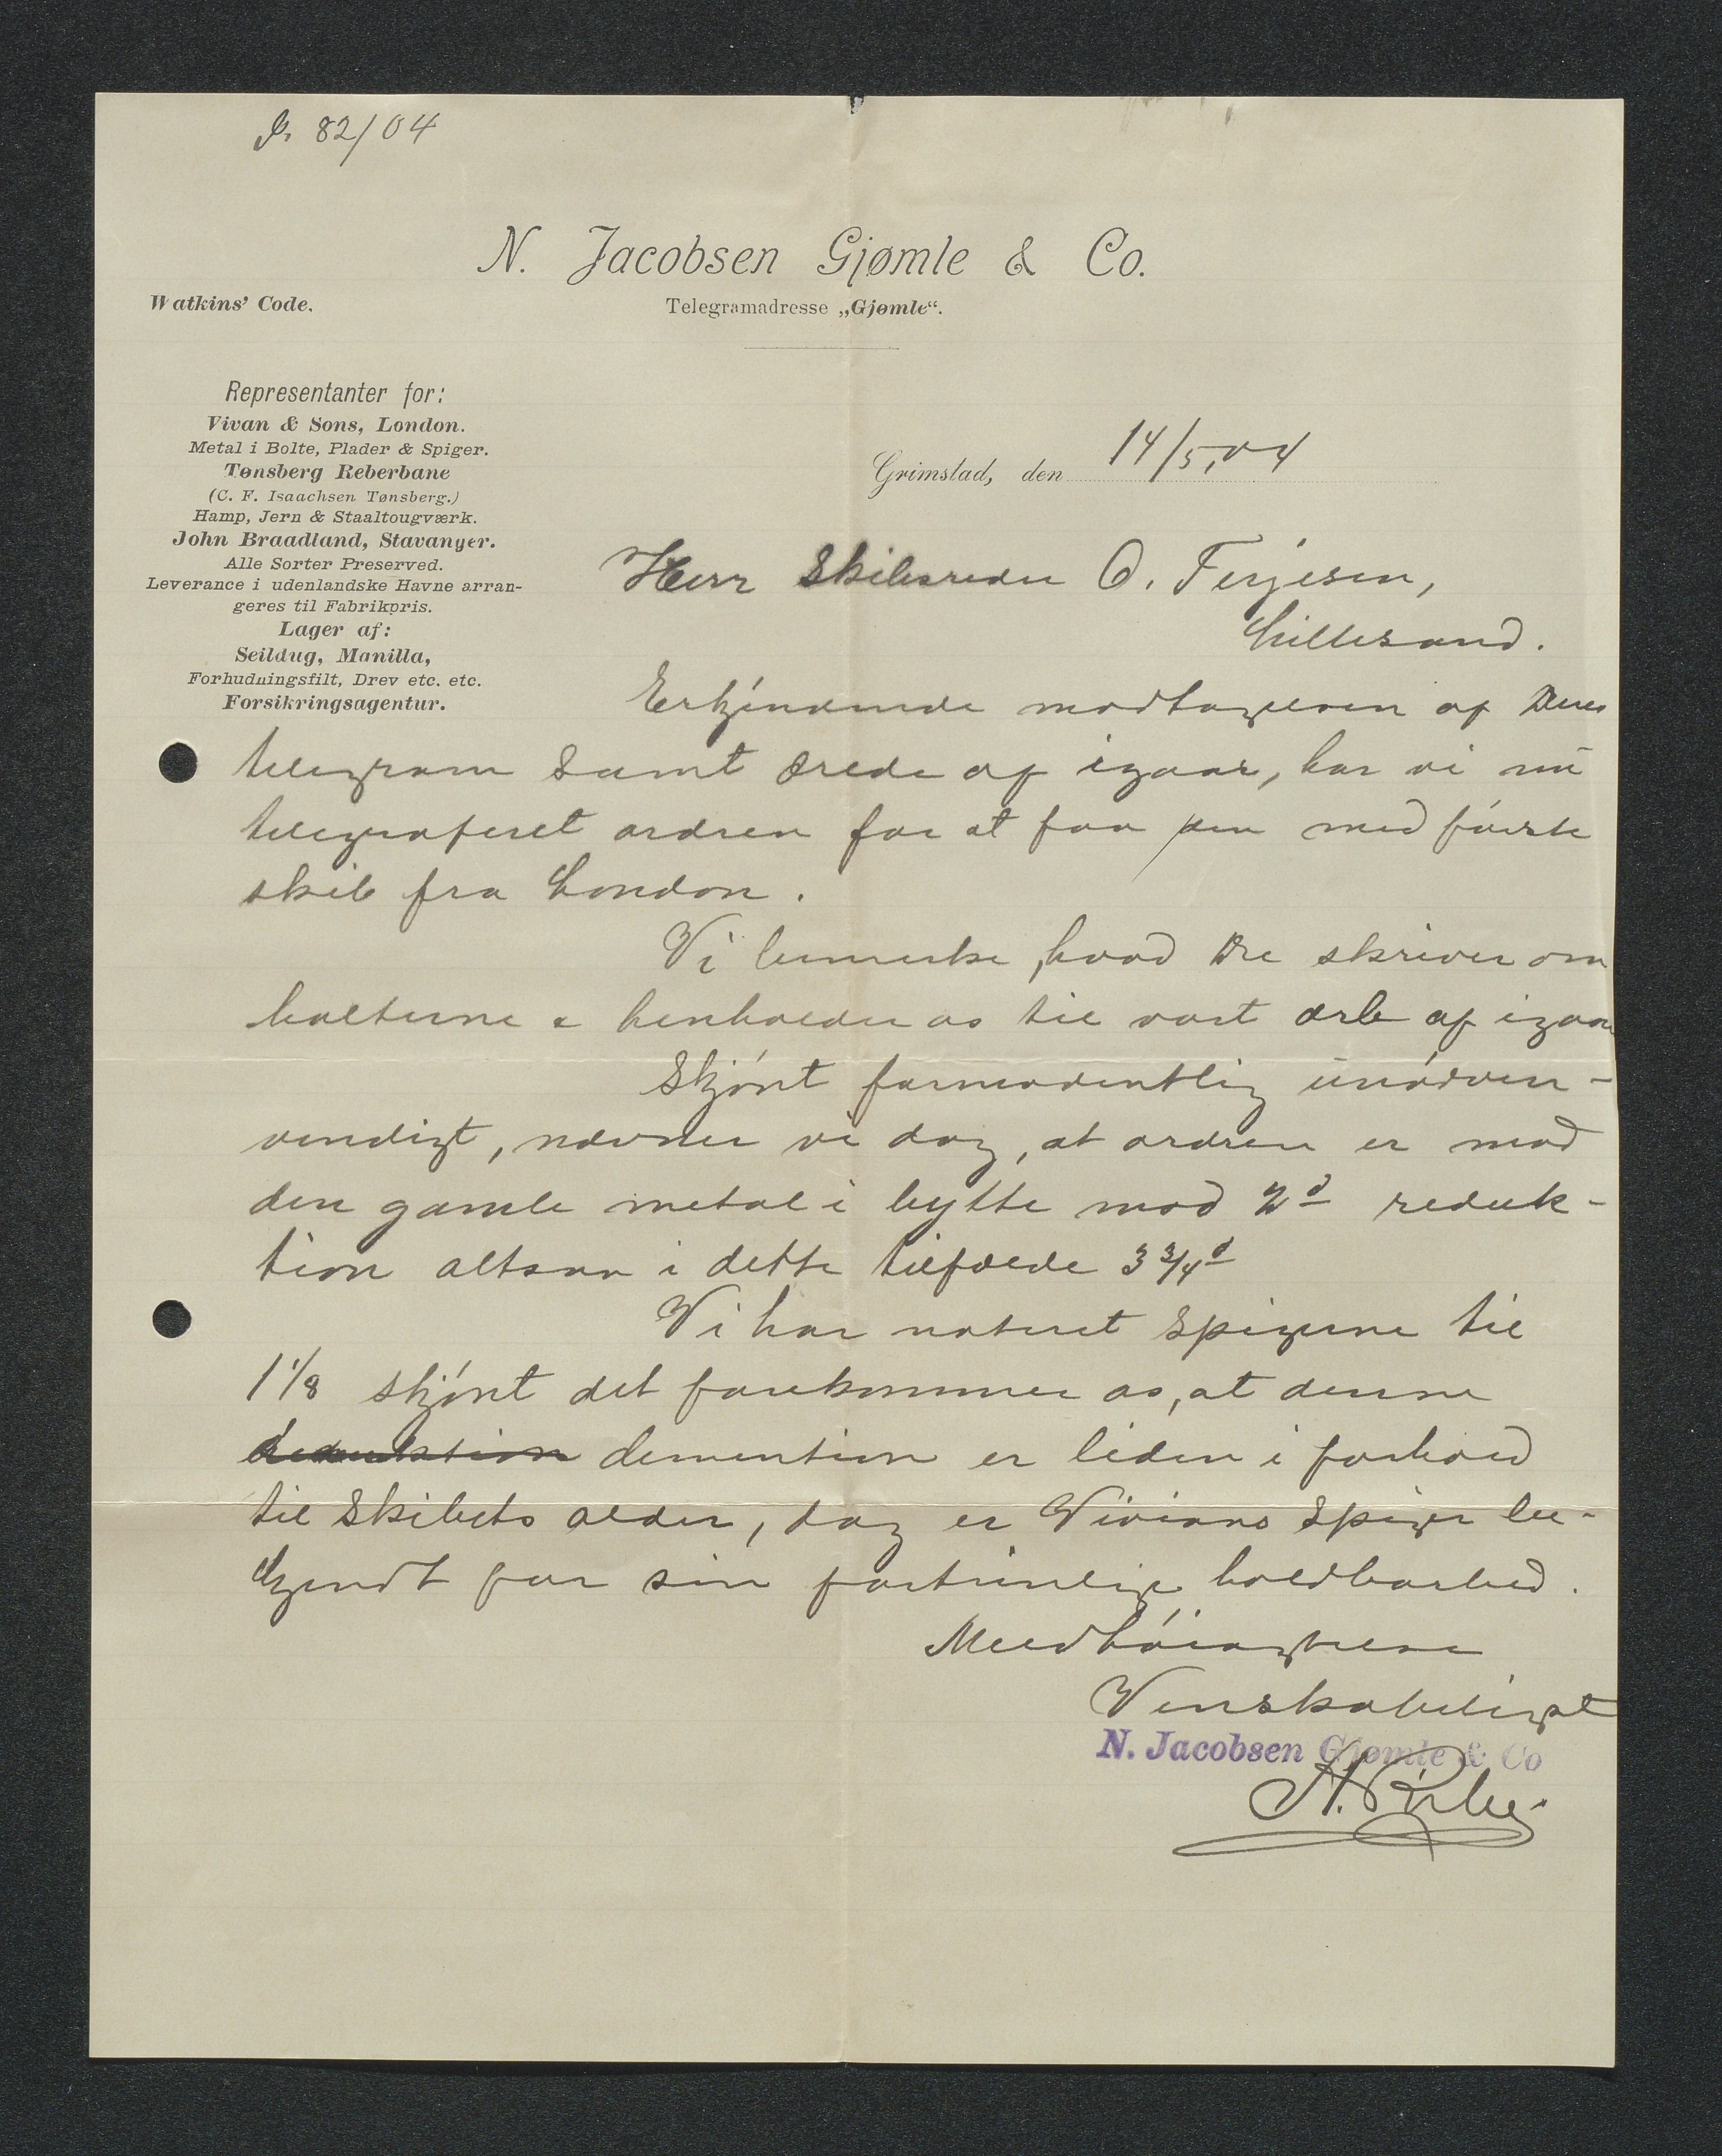 82/04
N. Jacobsen Gjømle & Co.
Watkins' Code.
Telegramadresse „Gjømle“.
Representanter for:
Vivan & Sons, London.
Metal i Bolte, Plader & Spiger.
Tønsberg Reberbane
(C. F. Isaachsen Tønsberg.)
Hamp, Jern & Staaltougværk.
John Braadland, Stavanger.
Alle Sorter Preserved.
Leverance i udenlandske Havne arran-
geres til Fabrikpris.
Lager af:
Seildug, Manilla,
Forhudningsfilt, Drev etc. etc.
Forsikringsagentur.
Grimstad, den 14/5.04
Herr Skibsreder O. Terjesen,
Lillesand.
Erkjendende modtagelsen af Deres
telegram samt ærede af igaar, har vi nu
telegraferet ordren for at faa den med første
skib fra London.
Vi bemerke, hvad De skriver om
bolterne & henholder os til vort ærb af igaar
Skjønt formodentlig unødven-
vendigt, nævner vi dog, at ordren er mod
den gamle metal i bytte mod 2d reduk-
tion altsaa i dette tilfælde 3 3/4d
Vi har noteret Spigerne til
1 1/8 skjønt det forekommer os, at denne
demention er liden i forhold
til Skibets alder, dog er Vivians Spiger be-
kjendt for sin fortrinlige holdbarhed.
Med høiagtelse
Venskabeligst
N. Jacobsen Gjømle & Co